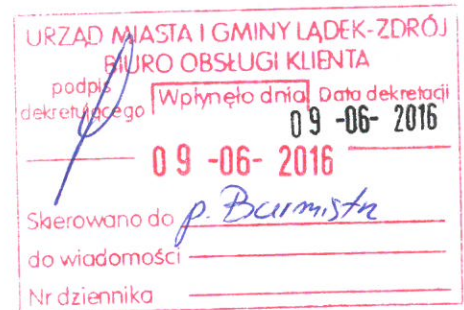 URZĄD MIASTA I GMINY LĄDEK-ZDRÓJ
BIURO OBSŁUGI KLIENTA
podpis dekretującego
Wpłynęło dnia
Data dekretacji
09 -06- 2016
09 -06- 2016
Skierowano do p. Burmistrz
do wiadomości
Nr dziennika